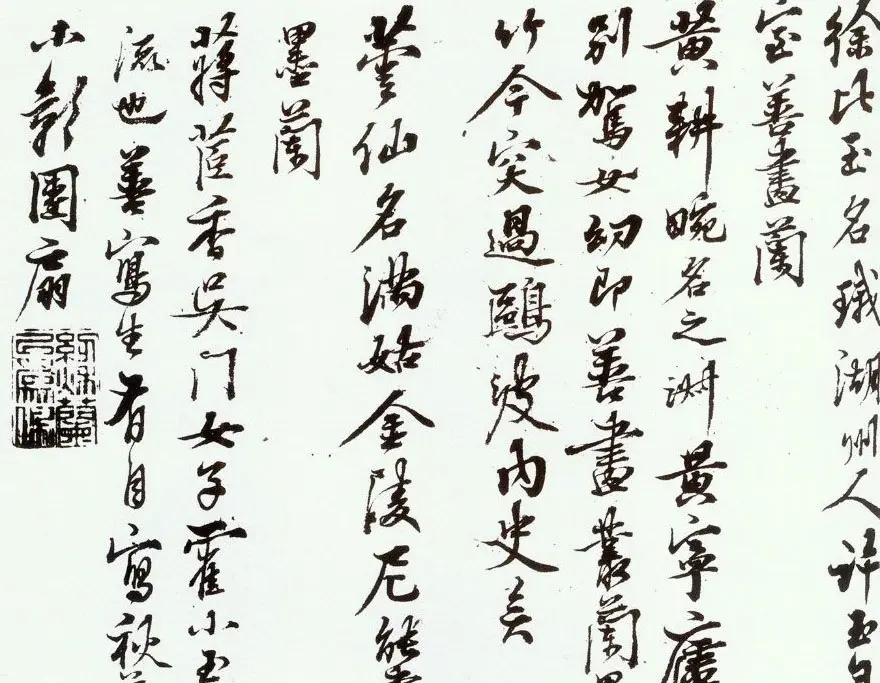 徐比玉名珴湖州人許玉
室善畫蘭
黃耕畹名之淑黃寧
別駕女幼即善畫叢蘭
竹今突過鷗波內史矣
蕚仙名滿姑金陵尼能
墨蘭
蔣茝香吳門女子霍小玉
流也善寫生有自寫秋
小影團扇